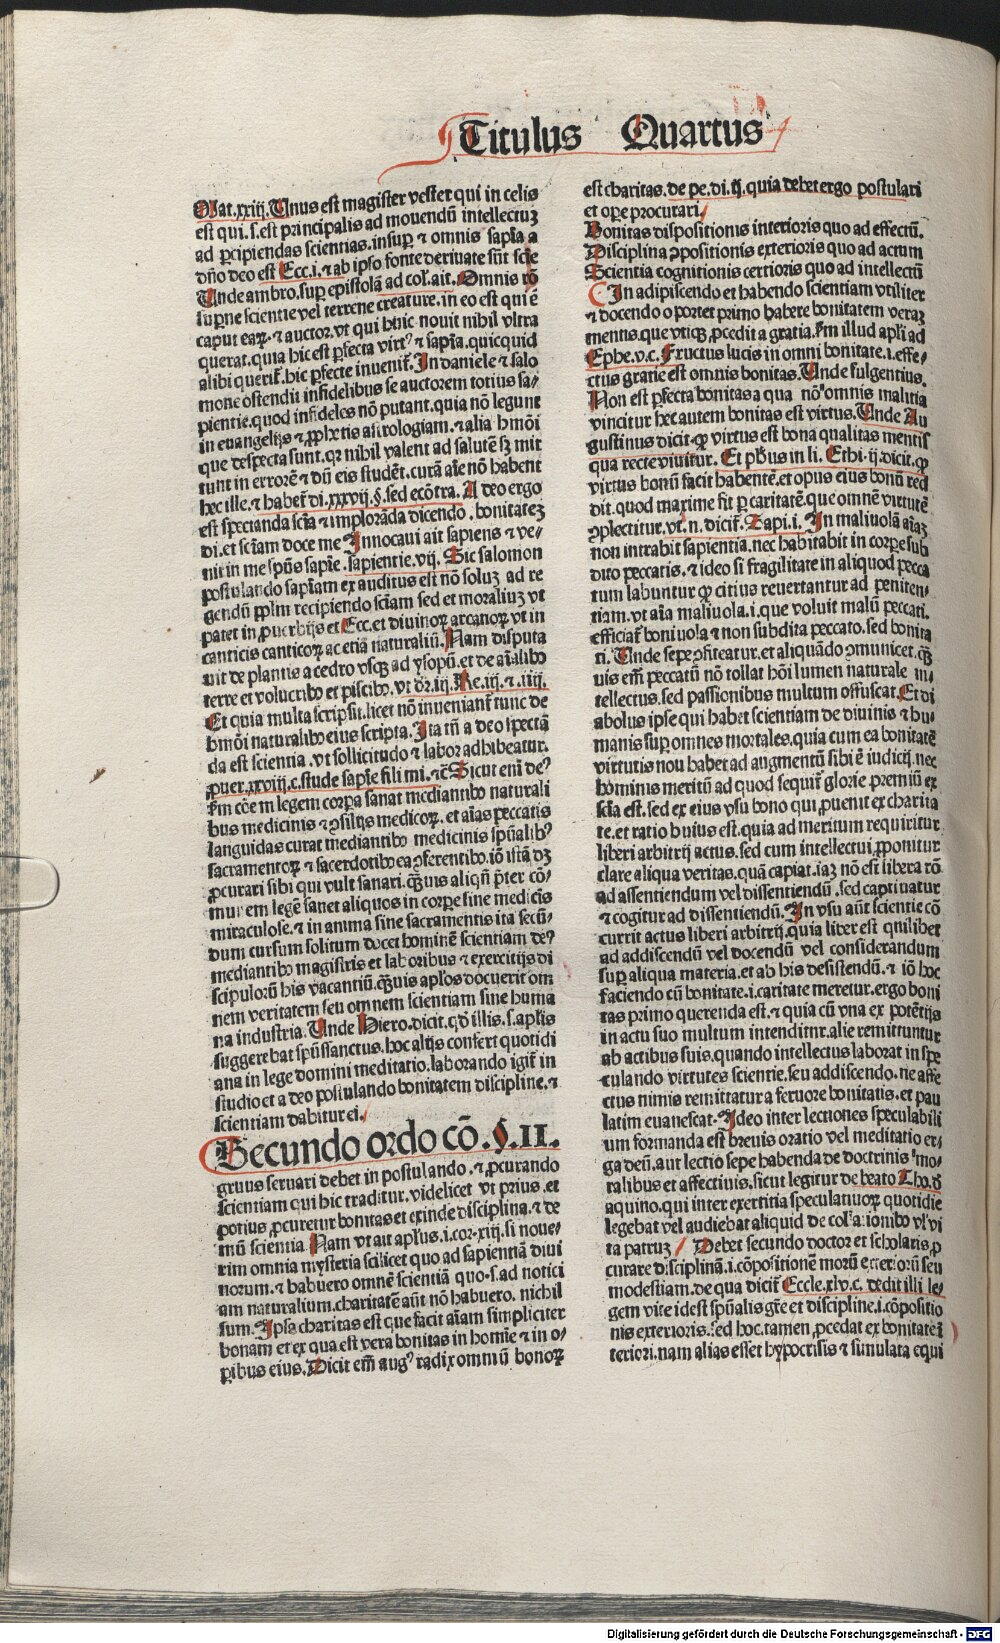 Titulus Quartus
Mat.xxiij. Unus est magister vester qui in celis
est qui.s.est principalis ad mouendū intellectuꝫ
ad ꝑcipiendas scientias.insuꝑ ⁊ omnis sapīa a
dño deo est Ecc.i.⁊ ab ipso fonte deriuate sūt scīe
Unde ambro.suꝑ epistolā ad col̓.ait. Omnis rō
suꝑne scientie vel terrene creature.in eo est qui ē
caput eaꝝ.⁊ auctor.vt qui hunc nouit nihil vltra
querat.quia hic est ꝑfecta virtꝰ ⁊ sapīa.quicquid
alibi querit̄.hic ꝑfecte inuenit̄. In daniele ⁊ salo
mone ostendit infidelibus se auctorem totius sa/
pientie.quod infideles nō putant.quia nō legunt
in euangelijs ⁊ ꝓphetis astrologiam.⁊ alia hmōi
que despecta sunt.qꝛ nihil valent ad salutē sꝫ mit
tunt in errorē ⁊ dū eis studēt.curā aīe nō habent
hec ille.⁊ habet̄ di.xxxvij.§.sed ecōtra. A deo ergo
est spectanda scīa ⁊ implorāda dicendo.bonitateꝫ
di.et scīam doce me Innocaui ait sapiens ⁊ ve/
nit in me spūs sapīe.sapientie.vij. Sic salomon
postulando sapīam ex auditus est nō soluꝫ ad re
gendū ppl̄m recipiendo scīam sed et moraliuꝫ vt
patet in ꝓuerbijs et Ecc.et diuinoꝝ arcanoꝝ vt in
canticis canticoꝝ ac etiā naturaliū. Nam disputa
uit de plantis a cedro vsqꝫ ad ysopū.et de aīalibꝰ
terre et volucribꝰ et piscibꝰ.vt dꝛ.iij. Re.iij.⁊.iiij.
Et quia multa scripsit.licet nō inueniant̄ tunc de
hmōi naturalibꝰ eius scripta. Ita tñ a deo spectā
da est scientia.vt sollicitudo ⁊ labor adhibeatur.
ꝓuer.xxviij.c.stude sapīe fili mi.⁊c̄ Sicut enī deꝰ
ẜm cōem legem corpa sanat mediantibꝰ naturali
bus medicinis ⁊ ↄsilijs medicoꝝ.et aīas peccatis
languidas curat mediantibꝰ medicinis spūalibꝰ
sacramentoꝝ ⁊ sacerdotibꝰ ea ↄferentibꝰ.iō istā dꝫ
ꝓcurari sibi qui vult sanari.q̄ꝫuis aliqñ ꝑter cō/
munem legē sanet aliquos in corpe sine medicīs
miraculose.⁊ in anima sine sacramentis ita secū/
dum cursum solitum docet hominē scientiam deꝰ
mediantibꝰ magistris et laboribus ⁊ exercitijs di
scipuloꝝ his vacantiū.q̄ꝫuis aplōs docuerit om
nem veritatem seu omnem scientiam sine huma
na industria. Unde Hiero.dicit.qd̓ illis.s.aplīs
suggerebat spūssanctus.hoc alijs confert quotidi
ana in lege domini meditatio.laborando igit̄ in
studio et a deo postulando bonitatem discipline.⁊
scientiam dabitur ei.
Secundo ordo cō.§.II.
gruus seruari debet in postulando.⁊ ꝓcurando
scientiam qui hic traditur.videlicet vt prius.et
potius ꝓcuretur bonitas et exinde disciplina.⁊ de
mū scientia Nam vt ait apl̓us.i.cor.xiij.si noue/
rim omnia mysteria scilicet quo ad sapientiā diui
norum.⁊ habuero omnē scientiā quo.s.ad notici
am naturalium.charitatē aūt nō habuero.nichil
sum. Ipsa charitas est que facit aīam simpliciter
bonam et ex qua est vera bonitas in homīe ⁊ in o/
ꝑibus eius. Dicit em̄ augꝰ radix omniū bonoꝝ
est charitas.de pe.di.ij.quia debet ergo postulari
et oꝑe procurari.
Bonitas dispositionis interioris quo ad effectū.
Disciplina ↄpositionis exterioris quo ad actum
Scientia cognitionis certioris quo ad intellectū
In adipiscendo et habendo scientiam vtiliter
⁊ docendo oportet primo habere bonitatem veraꝫ
mentis.que vtiqꝫ ꝓcedit a gratia.ẜm illud apl̓i ad
Ephe.v.c. Fructus lucis in omni bonitate.i.effe/
ctus gratie est omnis bonitas. Unde fulgentius.
Non est ꝑfecta bonitas a qua nō omnis malitia
vincitur hec autem bonitas est virtus. Unde Au
gustinus dicit.ꝙ virtus est bona qualitas mentis
qua recte viuitur. Et ph̓us in li. Ethi.ij.dicit.ꝙ
virtus bonū facit habentē.et opus eius bonū red
dit.quod maxime fit ꝑ caritatē.que omnē virtutē
ↄplectitur.vt.n.dicit̄. Sapi.i. In maliuolā aīaꝫ
non intrabit sapientia.nec habitabit in corpe sub
dito peccatis.⁊ ideo si fragilitate in aliquod pecca
tum labuntur ꝙ citius reuertantur ad peniten/
tiam.vt aīa maliuola.i.que voluit malū peccati.
efficiat̄ boniuola ⁊ non subdita peccato.sed bonita
ti. Unde sepe ↄfiteatur.et aliquādo ↄmunicet.q̄ꝫ
uis em̄ peccatū nō tollat hōi lumen naturale in/
tellectus.sed passionibus multum offuscat. Et di
abolus ipse qui habet scientiam de diuinis ⁊ hu/
manis suꝑ omnes mortales.quia cum ea bonitatē
virtutis nou habet ad augmentū sibi ē iudicij.nec
hominis meritū ad quod sequit̄ glorie premiū ex
scīa est.sed ex eius vsu bono qui ꝓuenit ex charita
te.et ratio huius est.quia ad meritum requiritur
liberi arbitrij actus.sed cum intellectui ꝓponitur
clare aliqua veritas.quā capiat.iaꝫ nō est libera rō
ad assentiendum vel dissentiendū.sed captiuatur
⁊ cogitur ad dissentiendū. In vsu aūt scientie cō
currit actus liberi arbitrij.quia liber est quilibet
ad addiscendū vel docendū vel considerandum
suꝑ aliqua materia.et ab his desistendū.⁊ iō hoc
faciendo cū bonitate.i.caritate meretur.ergo boni
tas primo querenda est.⁊ quia cū vna ex potētijs
in actu suo multum intenditur.alie remittuntur
ab actibus suis.quando intellectus laborat in spe
culando virtutes scientie.seu addiscendo.ne affe
ctus nimis remittatur a feruore bonitatis.et pau
latim euanescat. Ideo inter lectiones speculabili
um formanda est breuis oratio vel meditatio er/
ga deū.aut lectio sepe habenda de doctrinis mo/
ralibus et affectiuis.sicut legitur de beato Tho.d̓
aquino.qui inter exertitia speculatiuoꝝ quotidie
legebat vel audiebat aliquid de collationibꝰ vl̓ vi
ta patruꝫ Debet secundo doctor et scholaris ꝓ
curare disciplinā.i.cōpositionē morū exterioꝝ seu
modestiam.de qua dicit̄ Eccle.xlv.c. dedit illi le/
gem vite idest spūalis gr̄e et discipline.i.cōpositio
nis exterioris.sed hoc.tamen ꝓcedat ex bonitate ī
teriori.nam alias esset hypocrisis ⁊ simulata equi
Digitalisierung gefördert durch die Deutsche Forschungsgemeinschaft - DFG